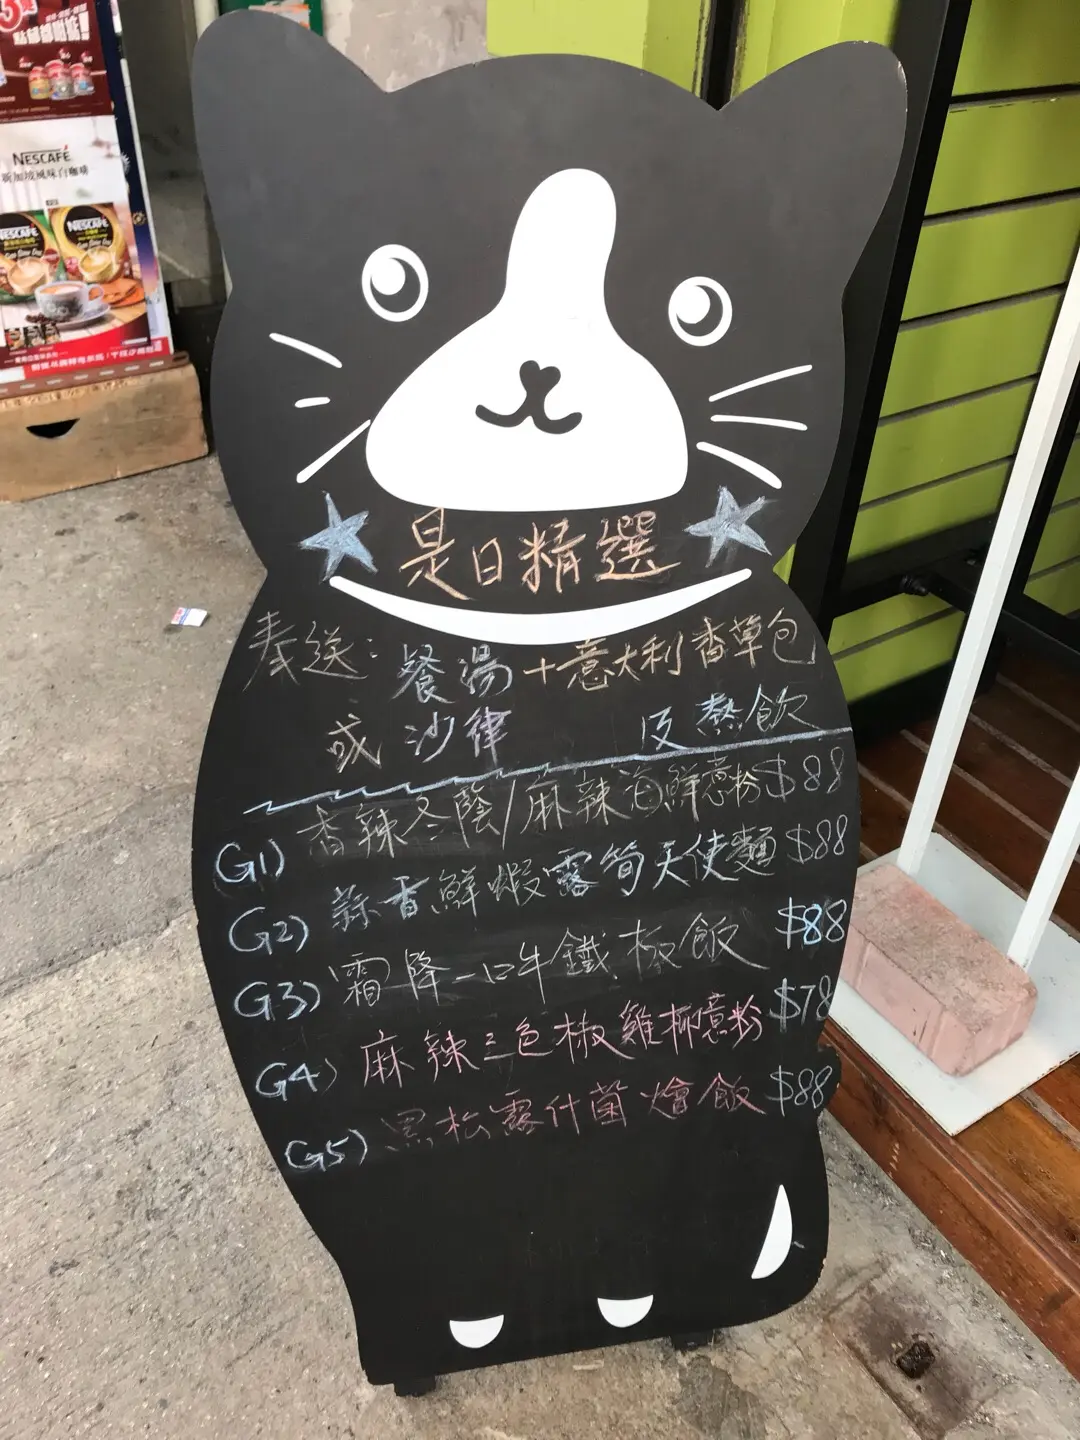 點都都咁掂!!
NESCAFÉ
新加坡風味白咖啡
NESCAFÉ
NESCAFÉ
★是日精選★
奉送：餐湯+意大利香草包
或沙律 及熱飲
G1) 香辣冬蔭/麻辣海鮮意粉$88
G2) 蒜香鮮蝦露筍天使麵$88
G3) 霜降一口牛鐵板飯 $88
G4) 麻辣三色椒雞柳意粉 $78
G5) 黑松露什菌燴飯 $88